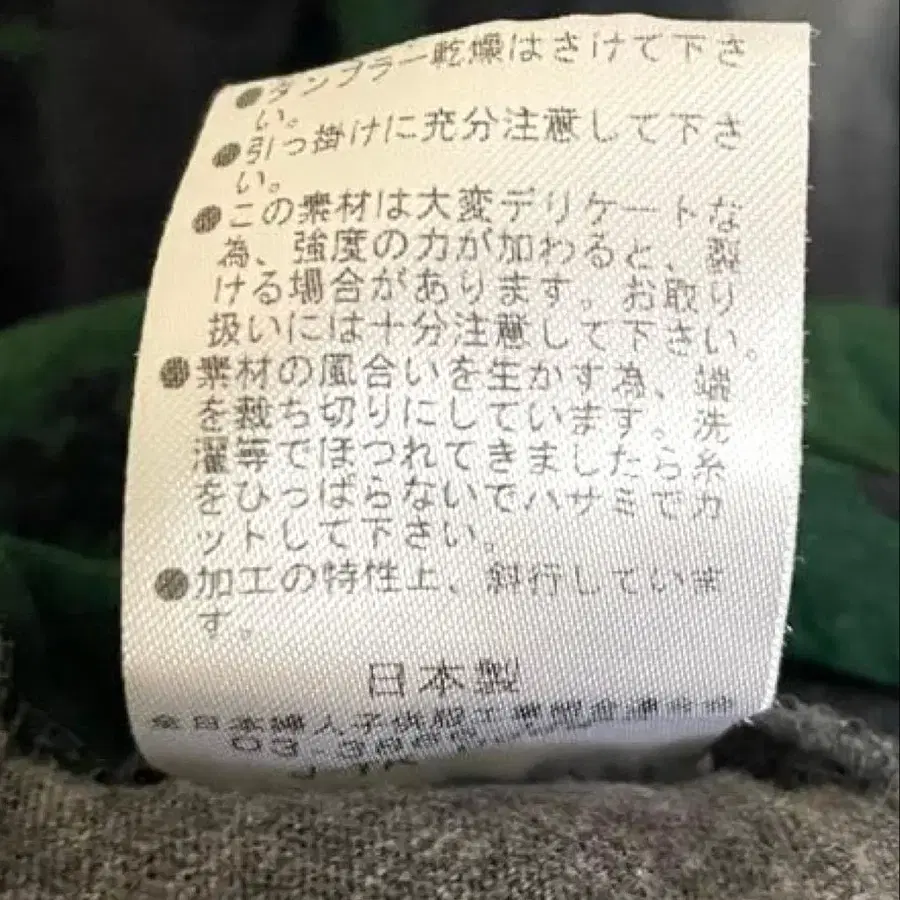 ●タンブラー乾燥はさけて下さ
い。
●引っ掛けに充分注意して下さ
い。
●この素材は大変デリケートな
為、強度の力が加わると、裂
ける場合があります。お取り
扱いには十分注意して下さい。
●素材の風合いを生かす為、端
を裁ち切りにしています。洗
濯等でほつれてきましたら糸
をひっぱらないでハサミでカ
ットして下さい。
●加工の特性上、斜行していま
す。
日本製
全日本婦人子供服工業組合連合会
03-